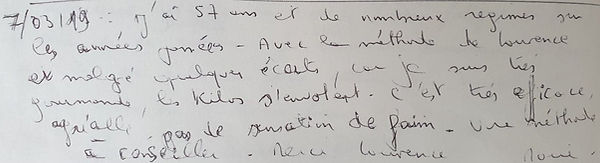 7/03/19 : j'ai 57 ans et de nombreux regimes sur
les années passées - Avec la méthode de Laurence
et malgré quelques écarts, car je suis très
gourmande, les kilos s'envolent. C'est très efficace,
agréable, pas de sensation de faim - une méthode
à conseiller - Merci Laurence